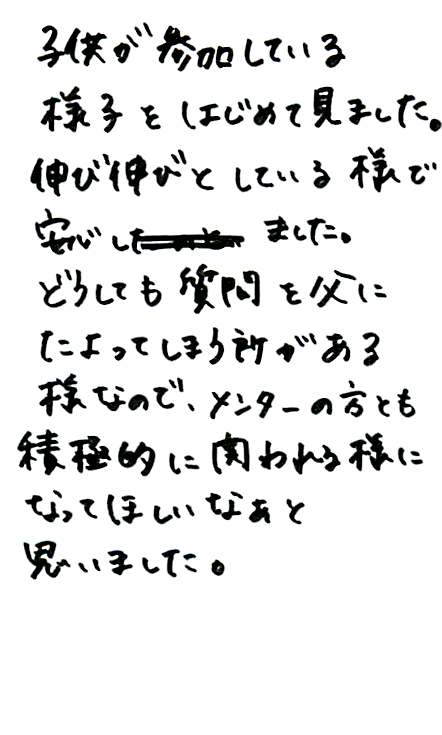 子供が参加している
様子をはじめて見ました。
伸び伸びとしている様で
安心しました。
どうしても質問を父に
たよってしまう所がある
様なので、メンターの方とも
積極的に関われる様に
なってほしいなぁと
思いました。